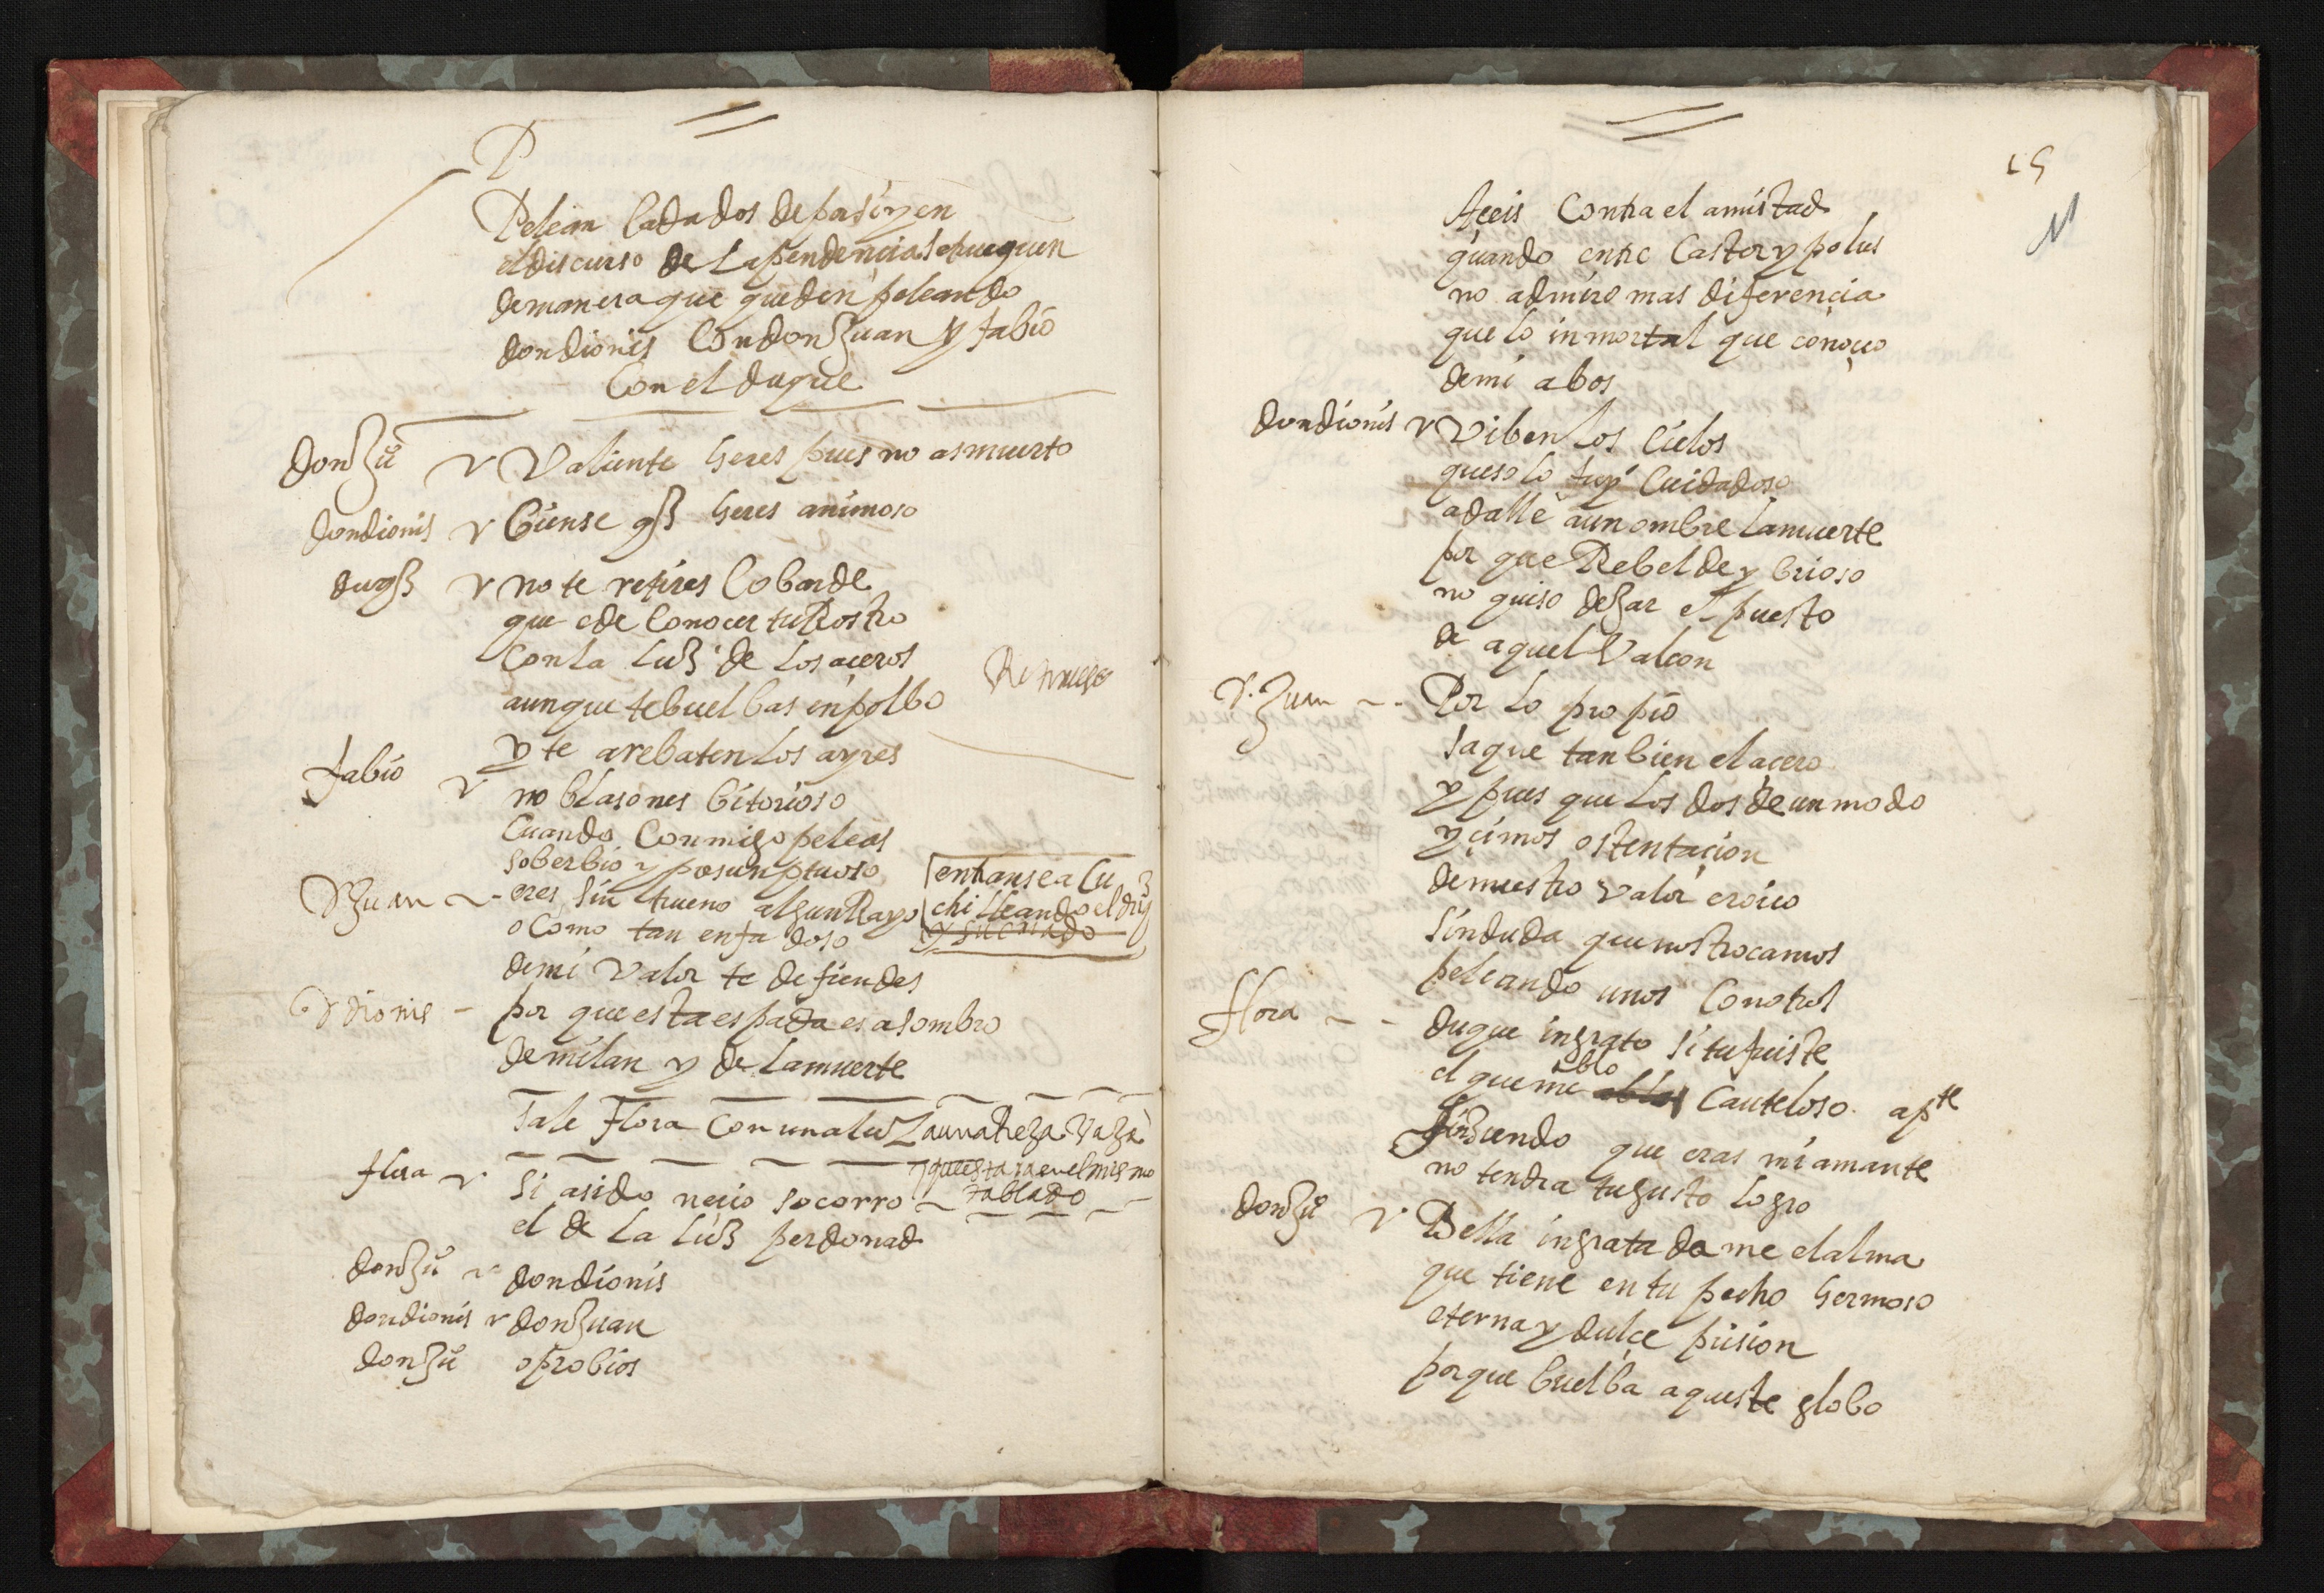 P
Pelean Cada dos de por si y en
el discurso de la pendencia se truequen
de manera que queden peleando
don dionis Con don Juan y fabio
Con el duque
don Juº Valiente heres pues no as muerto
don dionis biense q heres animoso
duq no te retires Cobarde
que e de Conocer tu Rostro
Con la luz de los açeros
aunque te buelbas en polbo
y te arebaten los ayres
fabio no blasones bitorioso
Cuando Conmigo peleas
soberbio y presunptuoso
D Juan eres sin trueno algun Rayo
o Como tan enfadoso
de mi Valor te defiendes
entranse a Cu
chilleando el
y su criado
D dionis por que esta espada es asombro
de milan y de la muerte
Sale Flora Con una luz a una Reja Vaja
que estara en el mismo
tablado
flora Si a sido neçio socorro
el de la luz perdonad
don Juº don dionis
don dionis don Juan
don Juº oprobios
15
Açeis Contra el amistad
quando entre Castor y polus
no admiro mas diferençia
que lo inmortal que conoçco
de mi a bos
don dionis Viben los Cielos
que solo fuy Cuidadoso
a dalle a un ombre la muerte
por que Rebelde y brioso
no quiso dejar el puesto
de aquel Valcon
D. Juan Por lo propio
saque tanbien el açero
y pues que los dos de un modo
yçimos ostentaçion
de nuestro Valor eroico
sin duda que nos trocamos
peleando unos Con otros
flora duque ingrato si tu fuiste
el que me ablo Cauteloso apte
finjiendo que eras mi amante
no tendra tu gusto logro
don Juº Bella ingrata dame el alma
que tiene en tu pecho hermoso
eterna y dulçe prision
porque buelba aqueste globo